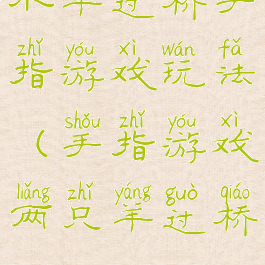 zhǐ yóu xì wán fǎ
指游戏玩法
shǒu zhǐ yóu xì
（手指游戏
liǎng zhī yáng guò qiáo
两只羊过桥